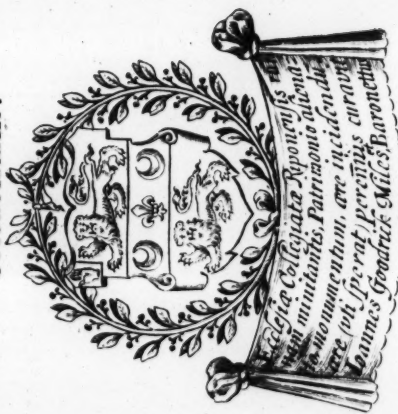 Ecclesiæ Collegiatæ Riponensis rui
nam minitantis, Patrimonio aliena-
to, monumentum, ære incidendū
ære (uti sperat) perennius curavit
Ioannes Goodrick Miles Baronettus